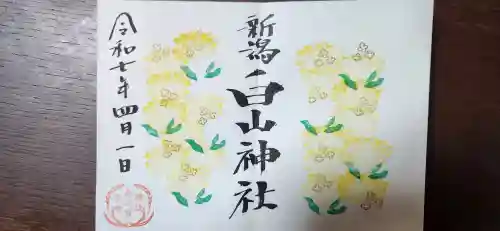 新潟
白山神社
令和七年四月一日